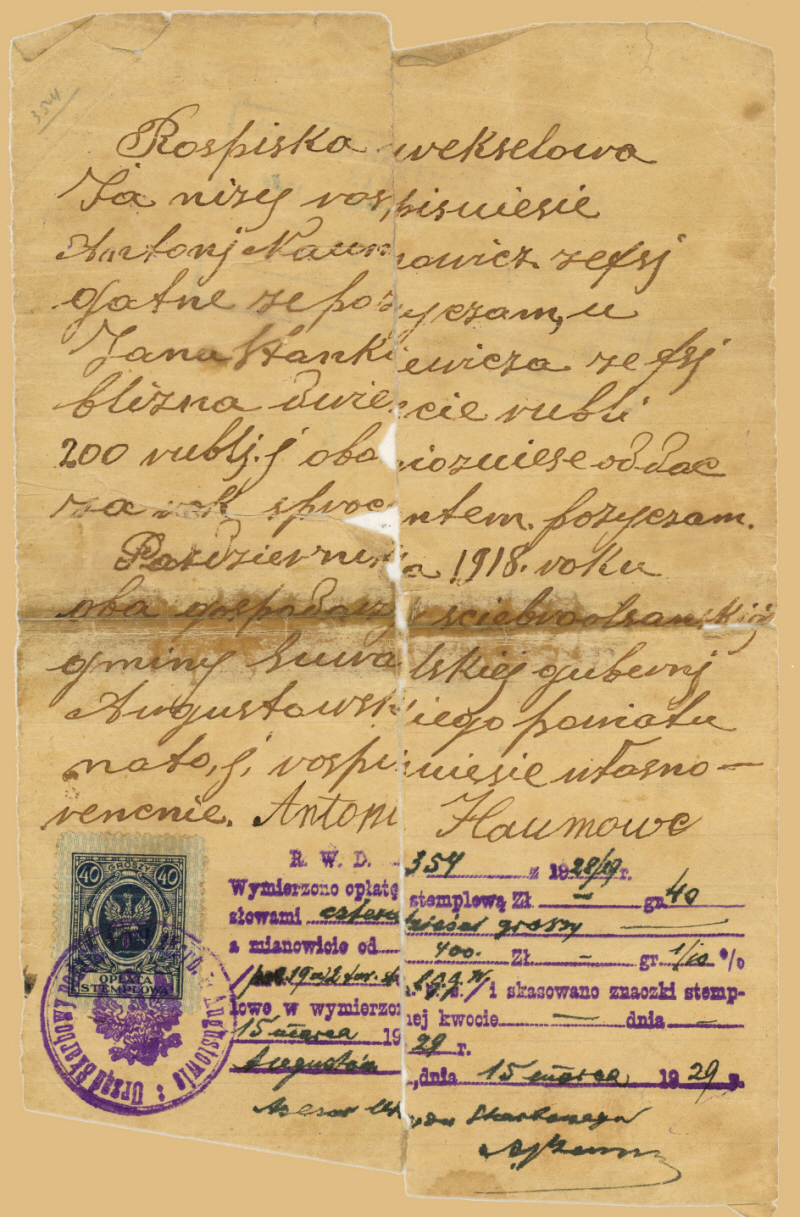 354
Rospiska wekselowa
Ja niżej rospisuiesie
Antonj Naumowicz zefsj
gatne zepozyczam, u
Jana Stankiewicza ze fsj
blizna dwiescie rubli
200 rublj. j obowiozuiese oddac
za rok sprocentem. pozyczam.
Pazdziernika 1918. roku
oba gospodarzy sciebroolszanskij
gminy Suwalskiej gubernj
Augustowskiego powiatu
nato, j, rospisuiesie własno—
rencnie. Antoni Haumowc
40 GROSZY 40
OPŁATA
STEMPLOWA
Urząd Skarbowy w Augustowie
R. W. D. 354 z 1928/29 r.
Wymierzono opłatę stemplową Zł. — gr. 40
słowami czterdzieści groszy —
a mianowicie od 400. Zł. — gr. 1/10 %
i skasowano znaczki stemp-
lowe w wymierzonej kwocie — dnia —
15 marca 1929 r.
Augustów, dnia 15 marca 1929 r.
Asesor Urzędu Skarbowego